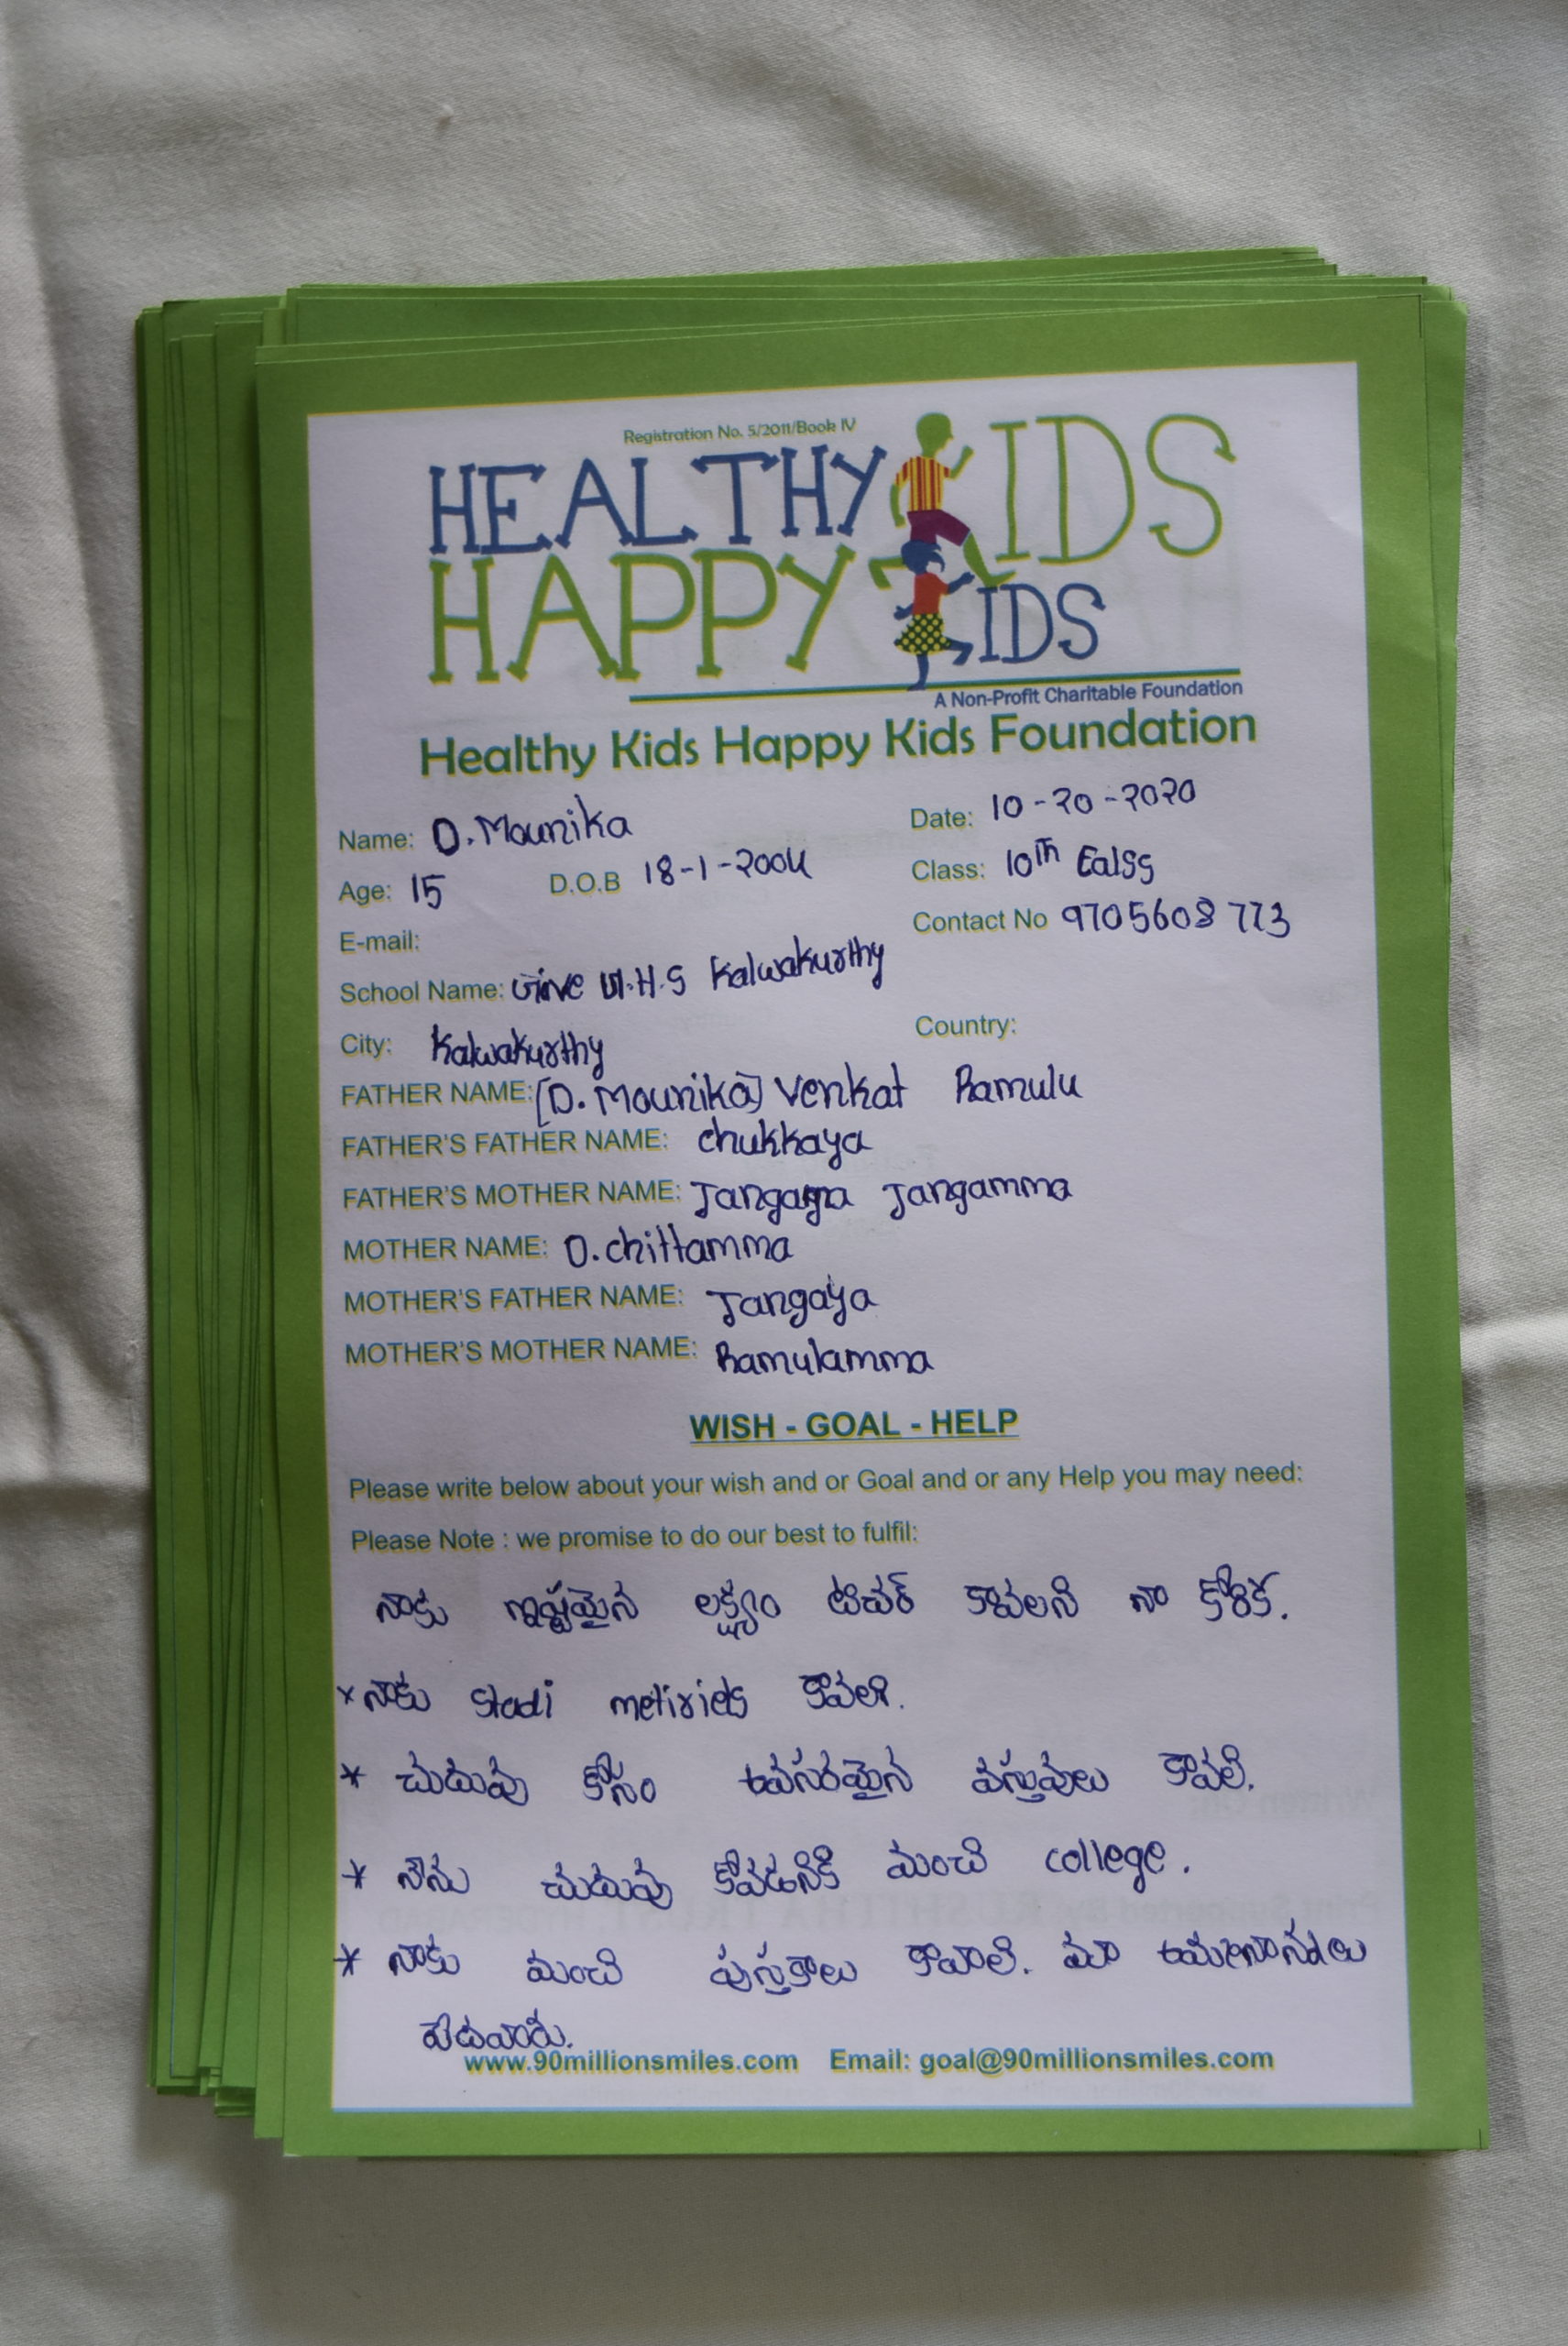 Registration No. 5/2011/Book IV
HEALTHY KIDS
HAPPY KIDS
A Non-Profit Charitable Foundation
Healthy Kids Happy Kids Foundation
Name: D. Mounika Date: 10-20-2020
Age: 15 D.O.B 18-1-2004 Class: 10th Calss
E-mail: Contact No 9705608773
School Name: H.S Kalwakurthy
City: Kalwakurthy Country:
FATHER NAME: [D. Mounika] Venkat Ramulu
FATHER'S FATHER NAME: chukkaya
FATHER'S MOTHER NAME: Jangamma
MOTHER NAME: D. chittamma
MOTHER'S FATHER NAME: Jangaya
MOTHER'S MOTHER NAME: Ramulamma
WISH - GOAL - HELP
Please write below about your wish and or Goal and or any Help you may need:
Please Note : we promise to do our best to fulfil:
నాకు ఇష్టమైన లక్ష్యం టిచర్ కావలని నా కోరిక.
* నాకు stadi కావలి.
* చుదువు కోసం అవసరమైన వస్తువులు కావలి.
* నేను చుదువు కోవడనికి మంచి college.
* నాకు మంచి పుస్తకాలు కావాలి. మా అమ్మనాన్నలు
పేదవారు.
www.90millionsmiles.com Email: goal@90millionsmiles.com